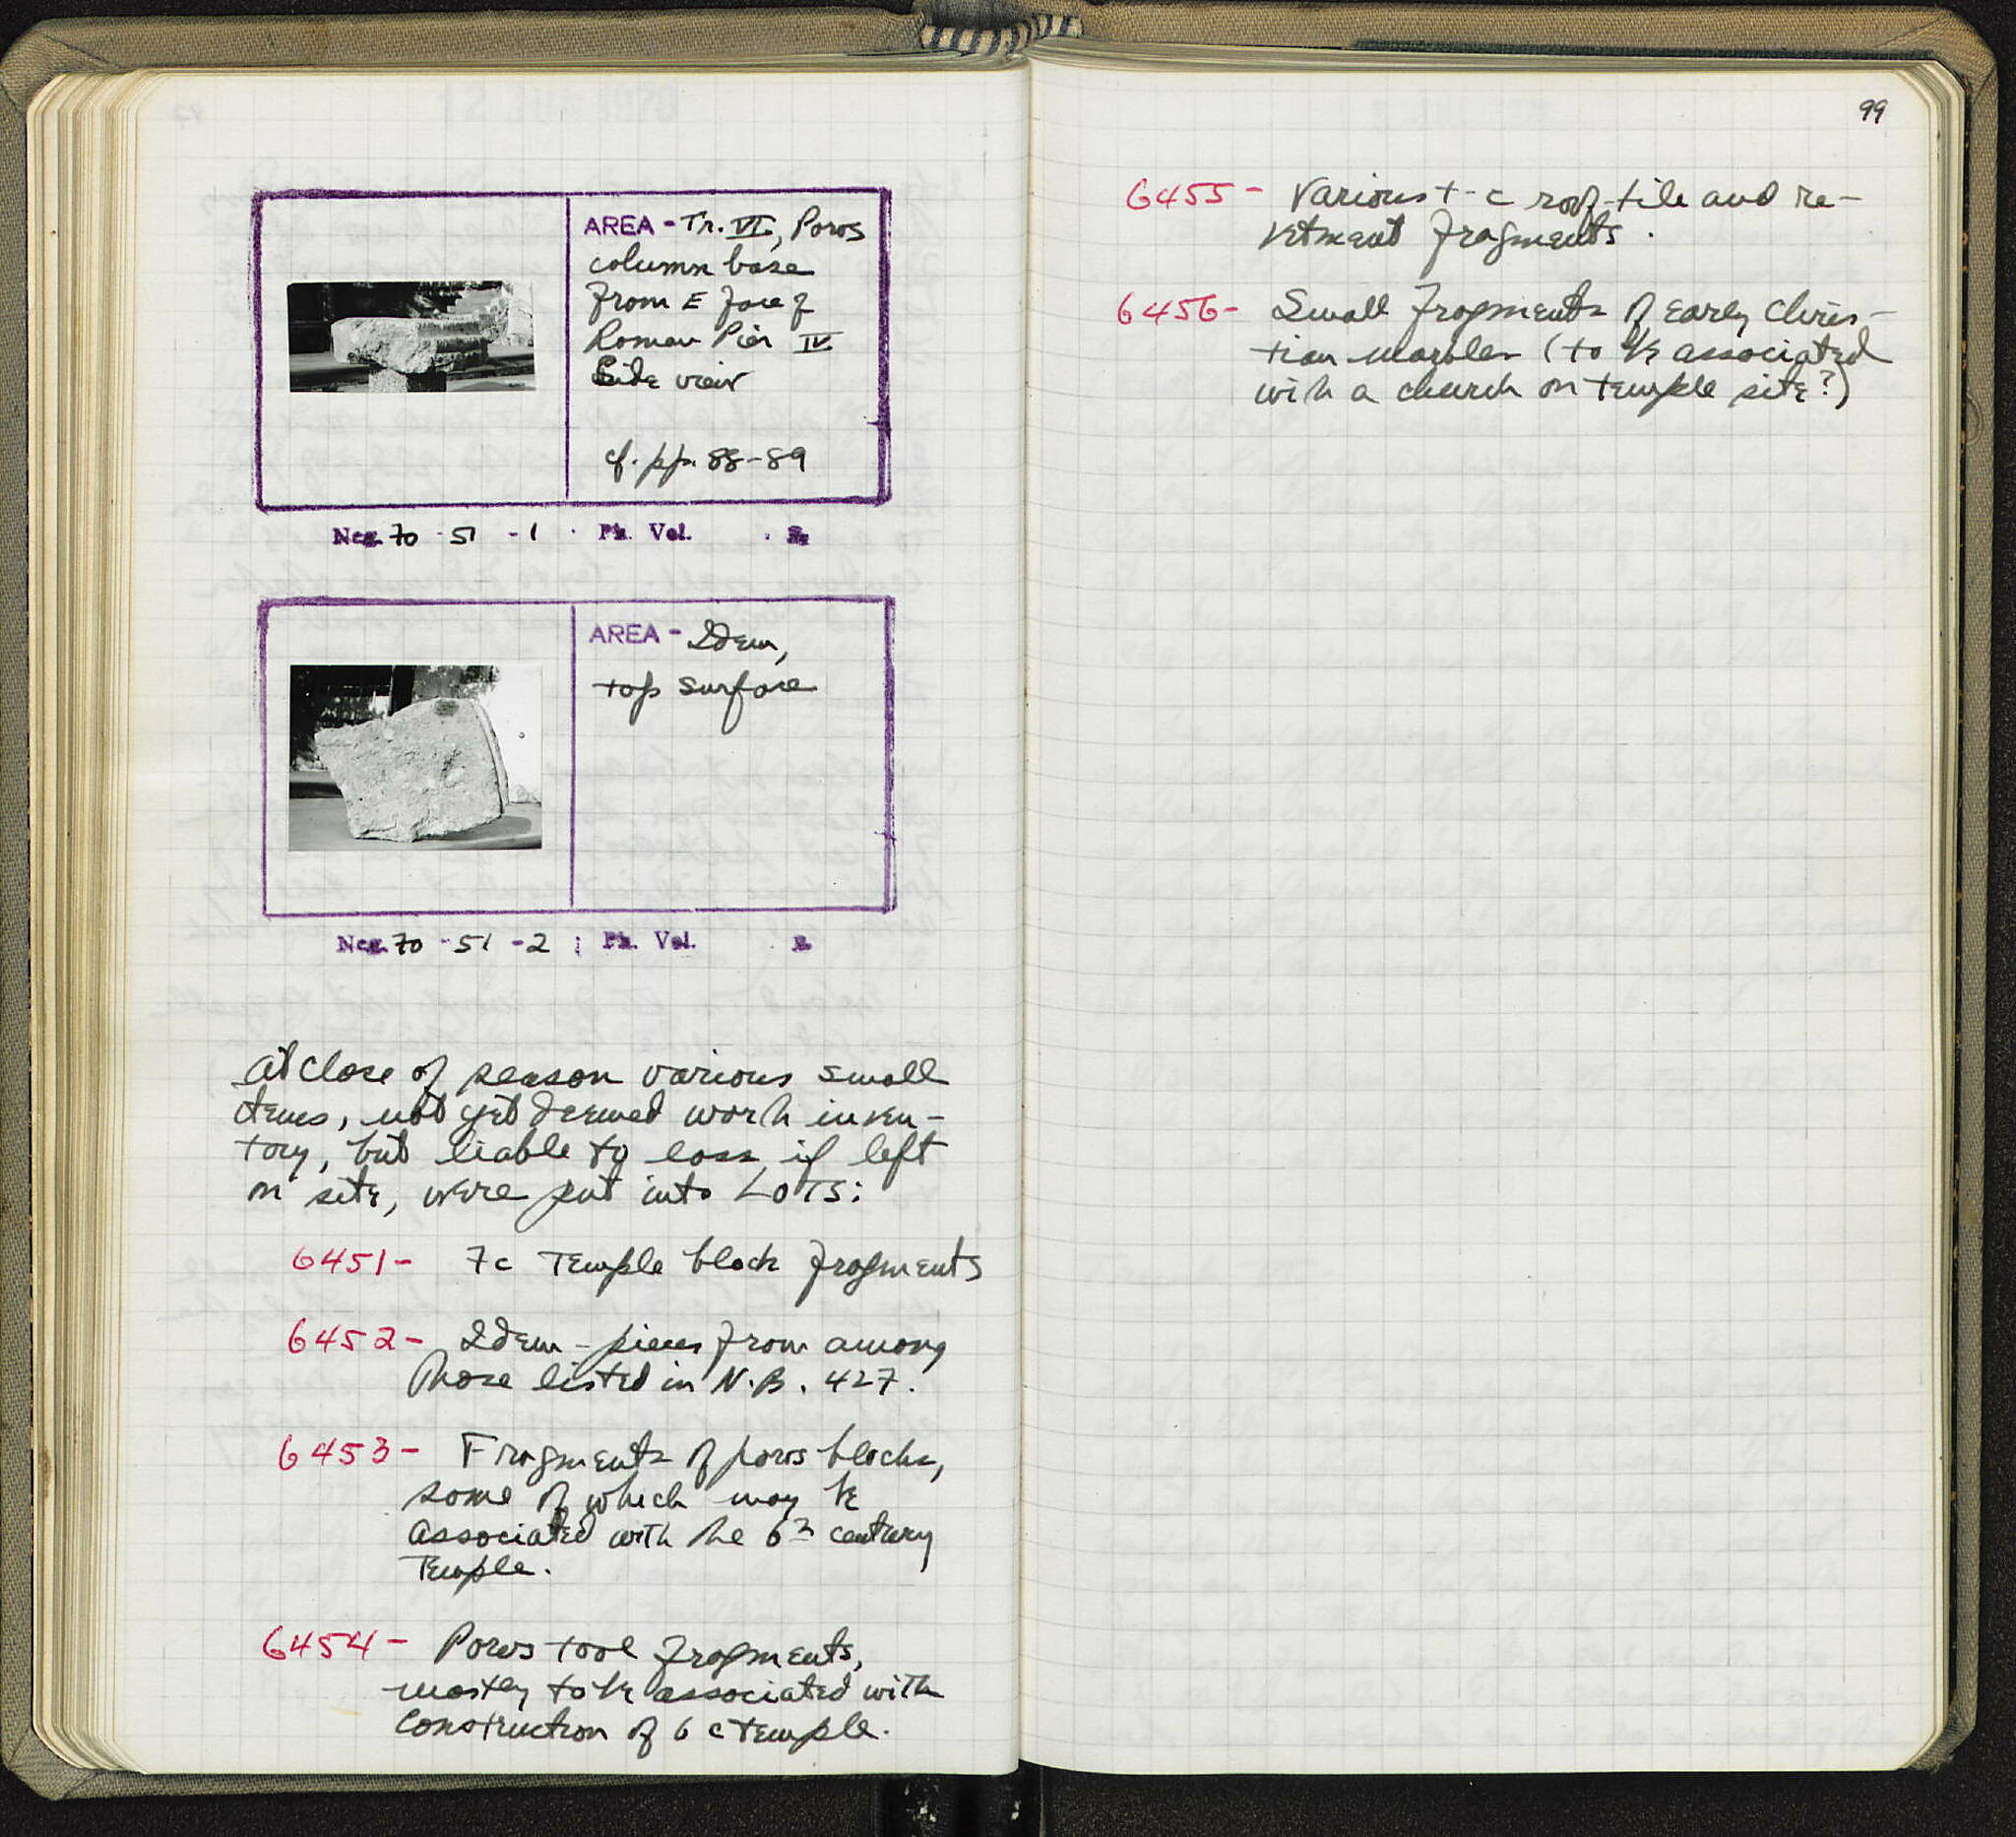 AREA - Tr. VI, Poros
column base
from E face of
Roman Pier IV
Side view
cf. pp. 88-89
Neg. 70 - 51 - 1 · Ph. Vol.
AREA - Idem,
top surface
Neg. 70 - 51 - 2 ; Ph. Vol.
At close of season various small
items, not yet deemed worth inven-
tory, but liable to loss if left
on site, were put into LOTS:
6451- 7c Temple block fragments
6452- Idem - pieces from among
those listed in N.B. 427.
6453- Fragments of poros blocks,
some of which may be
associated with the 6th century
Temple.
6454- Poros tool fragments,
mostly to be associated with
construction of 6 c temple.
99
6455- Various t-c roof-tile and re-
vetment fragments.
6456- Small fragments of early Chris-
tian marbles (to be associated
with a church on temple site?)